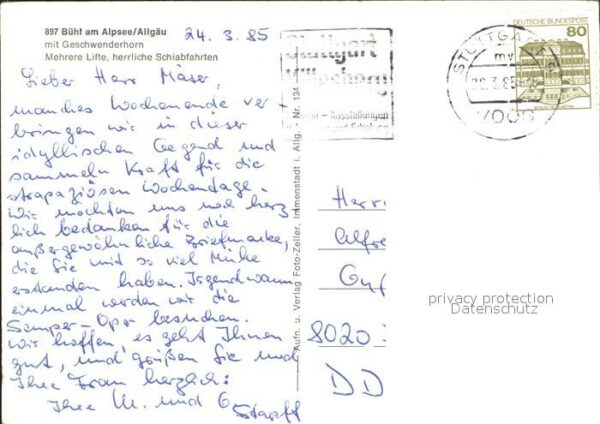 897 Bühl am Alpsee/Allgäu
mit Geschwenderhorn
Mehrere Lifte, herrliche Schiabfahrten
24.3.85
Lieber Herr Mäser,
manches Wochenende ver-
bringen wir in dieser
idyllischen Gegend und
sammeln Kraft für die
strapaziösen Wochentage.
Wir möchten uns noch herz
lich bedanken für die
außergewöhnliche Briefmarke,
die Sie mit so viel Mühe
erstanden haben. Irgendwann
einmal werden wir die
Semper-Oper besuchen.
Wir hoffen, es geht Ihnen
gut, und grüßen Sie und
Ihre Frau herzlich:
Ihre U. und G
Aufn. u. Verlag Foto-Zeller, Immenstadt i. Allg. - Nr. 134
Stuttgart
Killesberg
- Ausstellungen
STUTTGA
mv
7000
DEUTSCHE BUNDESPOST
80
Herr
Alfre
8020
DD
privacy protection
Datenschutz